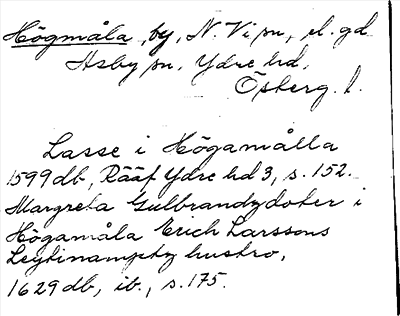 Högmåla, by, N. Vi sn, el. gd
Asby sn, Ydre hd,
Österg. l.
Lasse i Högamålla
1599 db, Rääf Ydre hd 3, s. 152.
Margreta Gulbrandzdoter i
Högamåla Erich Larssons
Legtinamptz hustro,
1629 db, ib., s. 175.